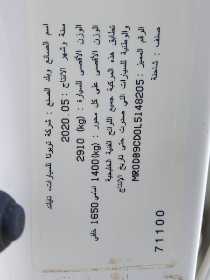 اسم الصانع وبلد الصنع : شركة تويوتا للسيارات، تايلاند
سنة وشهر الانتاج : 05 2020
الوزن الأقصى للسيارة : (kg) 2910
الوزن الأقصى على كل محور : (kg) 1400 امامي 1650 خلفي
تطابق هذه المركبة جميع اللوائح الفنية الخليجية
والوطنية للسيارات التي صدرت حتى تاريخ الانتاج
الرقم المميز : MR0DB9CD0L5148205
صنف : شاحنة
71100